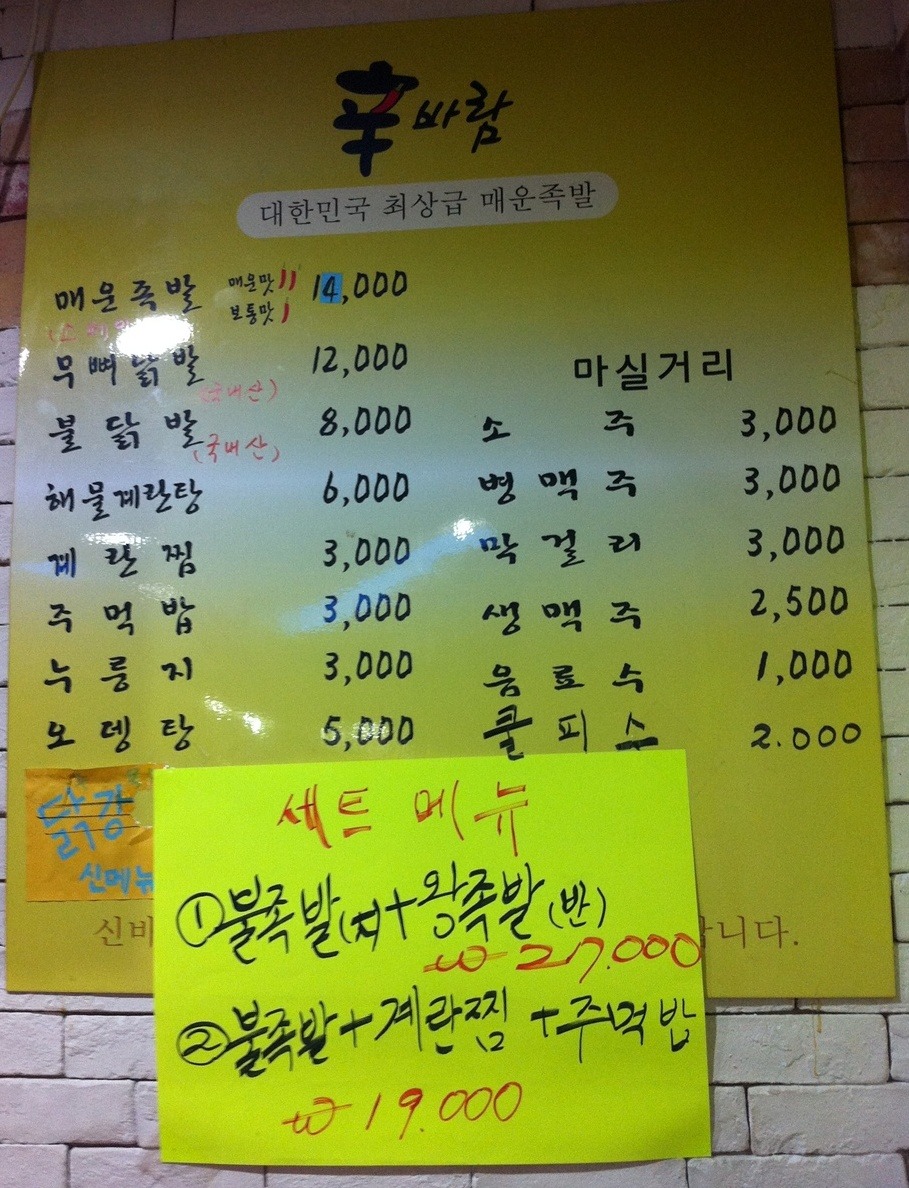 辛바람
대한민국 최상급 매운족발
매운족발 매운맛 14,000
보통맛
무뼈닭발 12,000
(국내산)
불닭발 8,000
(국내산)
해물계란탕 6,000
계란찜 3,000
주먹밥 3,000
누룽지 3,000
오뎅탕 5,000
마실거리
소주 3,000
병맥주 3,000
막걸리 3,000
생맥주 2,500
음료수 1,000
쿨피스 2.000
닭강
신메뉴
신바
니다.
세트 메뉴
①불족발 + 왕족발(반)
₩27.000
②불족발+계란찜+주먹밥
₩19.000